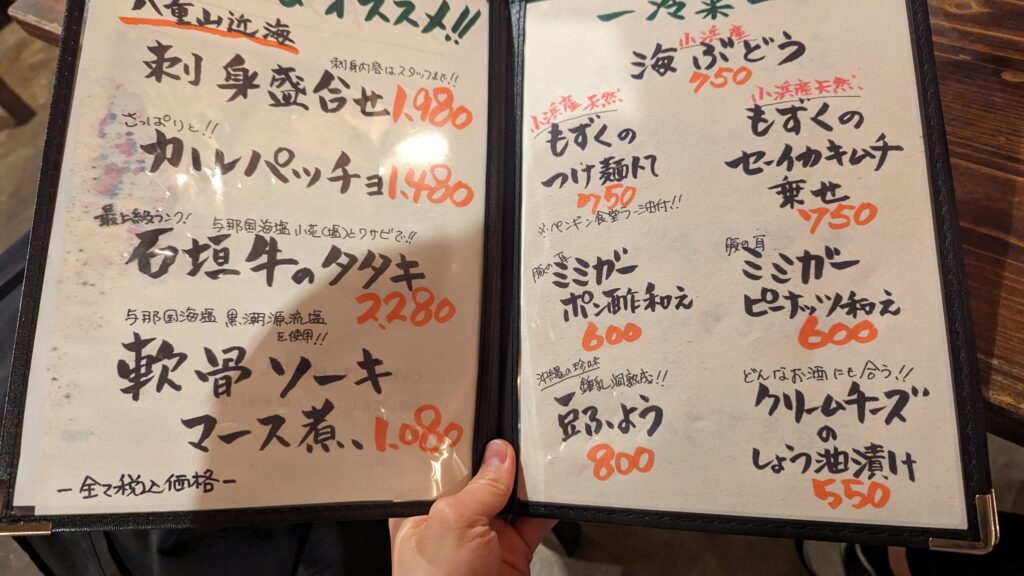 オススメ!!
八重山近海
刺身内容はスタッフまで!!
刺身盛合せ 1,980
さっぱりと!!
カルパッチョ 1,480
最上級ランク! 与那国海塩 小花(塩)とワサビで!!
石垣牛のタタキ
2,280
与那国海塩 黒潮源流塩
を使用!!
軟骨ソーキ
マース煮、 1,080
-全て税込価格-
一冷菜一
小浜産
海ぶどう
750
小浜産天然
もずくの
つけ麺トて
750
※ペンギン食堂ラー油付!!
小浜産天然、
もずくの
セーイカキムチ
乗せ
750
豚の耳
ミミガー
ポン酢和え
600
豚の耳
ミミガー
ピーナッツ和え
600
沖縄の珍味
鍾乳洞熟成!!
豆ふよう
800
どんなお酒にも合う!!
クリームチーズ
の
しょう油漬け
550